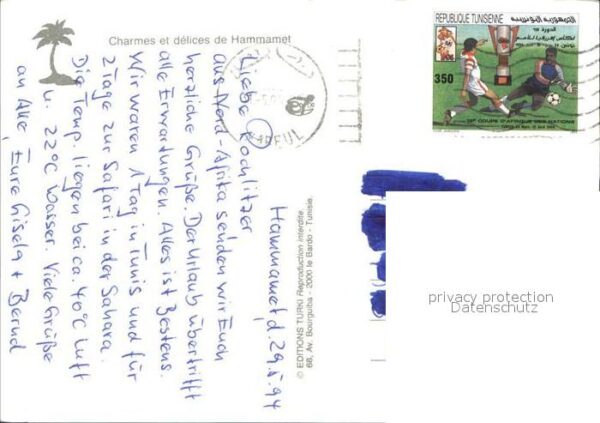 Charmes et délices de Hammamet
Hammamet, d. 29.5.94
Liebe Rochlitzer
aus Nord-Afrika senden wir Euch
herzliche Grüße. Der Urlaub übertrifft
alle Erwartungen. Alles ist Bestens.
Wir waren 1 Tag in Tunis und für
2 Tage zur Safari in der Sahara.
Die Temp. liegen bei ca. 40°C Luft
u. 22°C Wasser. Viele Grüße
an Alle, Eure Gisela + Bernd
© EDITIONS TURKI Reproduction interdite
68, Av. Bourguiba - 2000 le Bardo - Tunisie.
REPUBLIQUE TUNISIENNE
الجمهورية التونسية
350
19e COUPE D'AFRIQUE DES NATIONS
privacy protection
Datenschutz